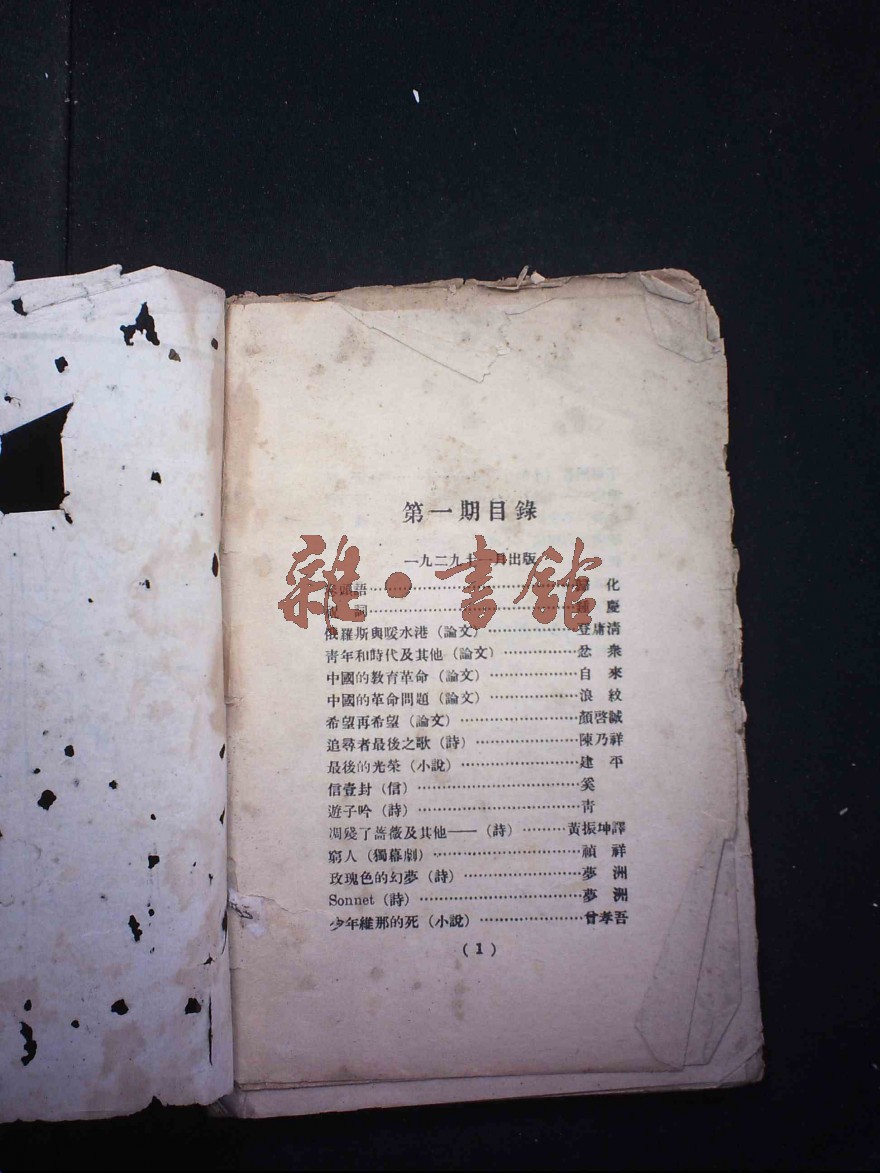 第一期目錄
一九二九十一月出版
卷頭語……化
詞……慶
俄羅斯與暖水港（論文）……登庸清
靑年和時代及其他（論文）……忿衆
中國的敎育革命（論文）……自來
中國的革命問題（論文）……浪紋
希望再希望（論文）……顏啓誠
追尋者最後之歌（詩）……陳乃祥
最後的光榮（小說）……建平
信壹封（信）……奚
遊子吟（詩）……靑
凋殘了薔薇及其他——（詩）……黃振坤譯
窮人（獨幕劇）……禎祥
玫瑰色的幻夢（詩）……夢洲
Sonnet（詩）……夢洲
少年維那的死（小說）……曾孝吾
(1)
雜·書館